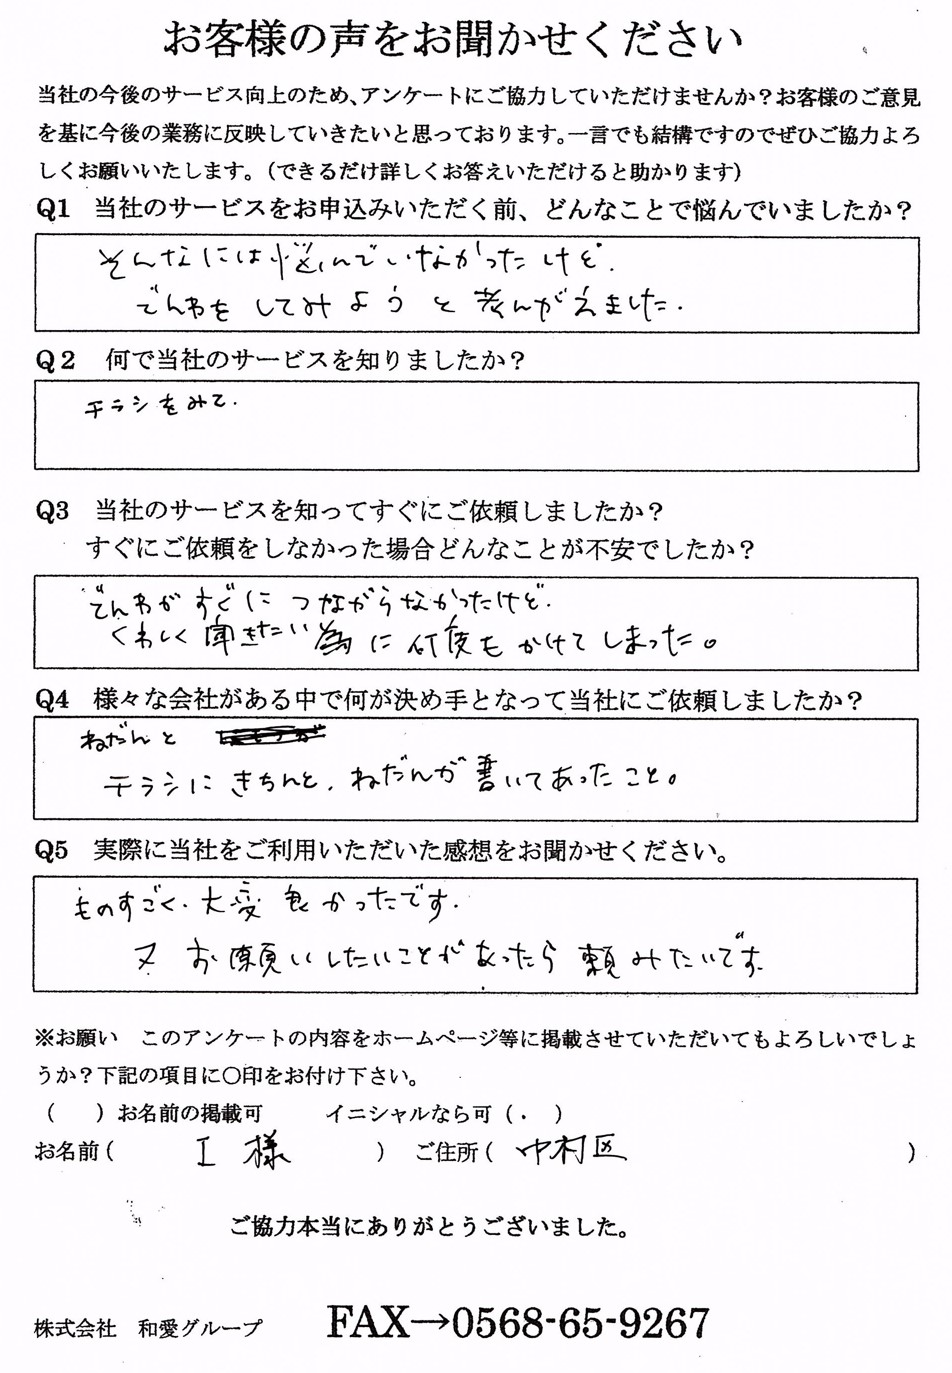 お客様の声をお聞かせください
当社の今後のサービス向上のため、アンケートにご協力していただけませんか？お客様のご意見
を基に今後の業務に反映していきたいと思っております。一言でも結構ですのでぜひご協力よろ
しくお願いいたします。（できるだけ詳しくお答えいただけると助かります）
Q1　当社のサービスをお申込みいただく前、どんなことで悩んでいましたか？
そんなには悩んでいなかったけど.
でんわをしてみようと考んがえました.
Q2　何で当社のサービスを知りましたか？
チラシをみて.
Q3　当社のサービスを知ってすぐにご依頼しましたか？
すぐにご依頼をしなかった場合どんなことが不安でしたか？
でんわがすぐにつながらなかったけど.
くわしく聞きたい為に何度もかけてしまった。
Q4　様々な会社がある中で何が決め手となって当社にご依頼しましたか？
ねだんと
チラシにきちんと、ねだんが書いてあったこと。
Q5　実際に当社をご利用いただいた感想をお聞かせください。
ものすごく、大変良かったです.
又お願いしたいことがあったら頼みたいです.
※お願い　このアンケートの内容をホームページ等に掲載させていただいてもよろしいでしょ
うか？下記の項目に○印をお付け下さい。
（　　）お名前の掲載可　　イニシャルなら可（．　）
お名前（　I 様　）　ご住所（　中村区　）
ご協力本当にありがとうございました。
株式会社　和愛グループ　　FAX→0568-65-9267